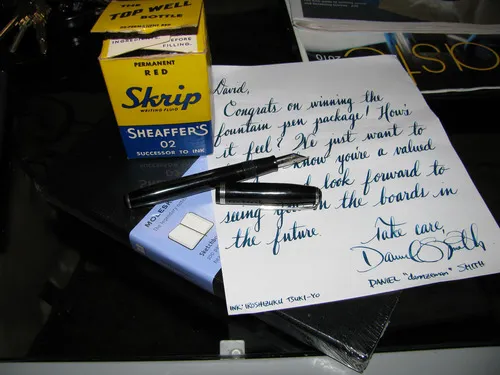 THE
TOP WELL
BOTTLE
INGREDIENTS BEFORE
FILLING.
PERMANENT
RED
Skrip
WRITING FLUID
SHEAFFER'S
02
SUCCESSOR TO INK
MOLESK
Sketch
David,
Congrats on winning the
fountain pen package! How's
it feel? We just want to
know you're a valued
look forward to
seeing you on the boards in
the future
Take care,
Daniel Smith
DANIEL "damzeman" SMITH
INK: IROSHIZUKU TSUKI-YO